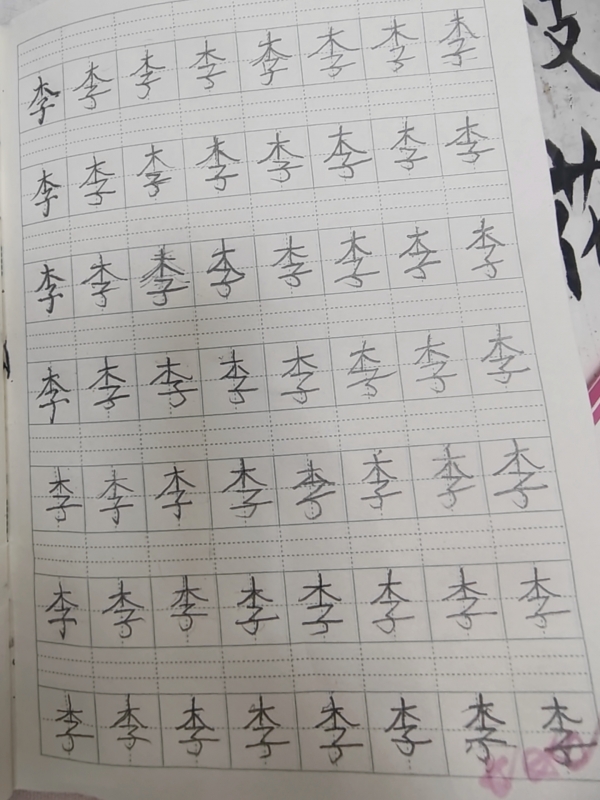 李李李李李李李李
李李李李李李李李
李李李李李李李李
李李李李李李李李
李李李李李李李李
李李李李李李李李
李李李李李李李李